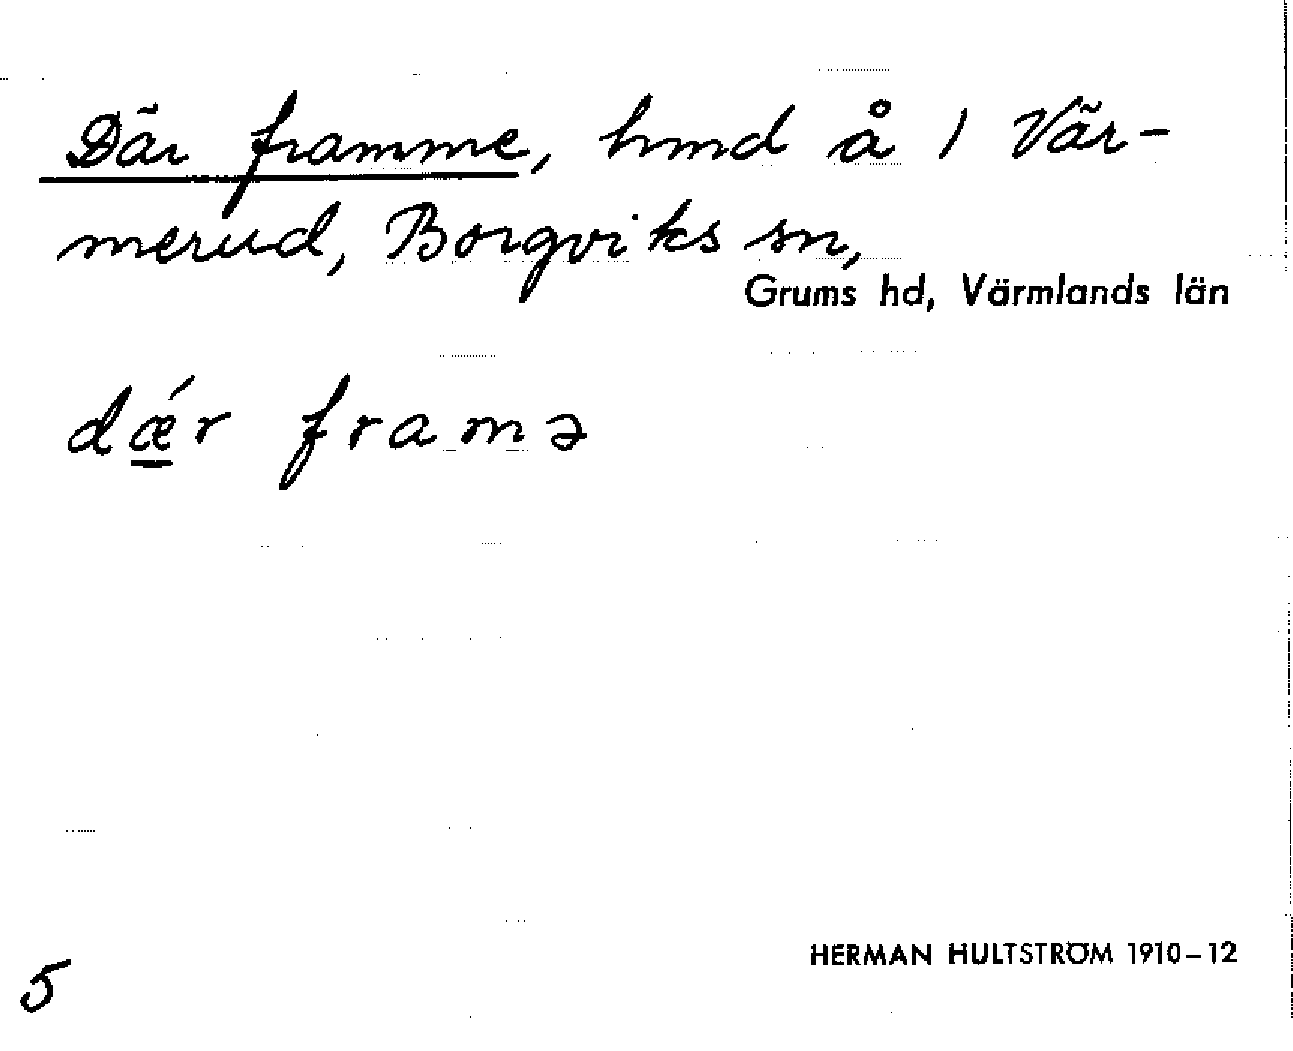 Där framme, hmd å 1 Vär-
merud, Borgviks sn,
Grums hd, Värmlands län
dǽr framə
HERMAN HULTSTRÖM 1910–12
5